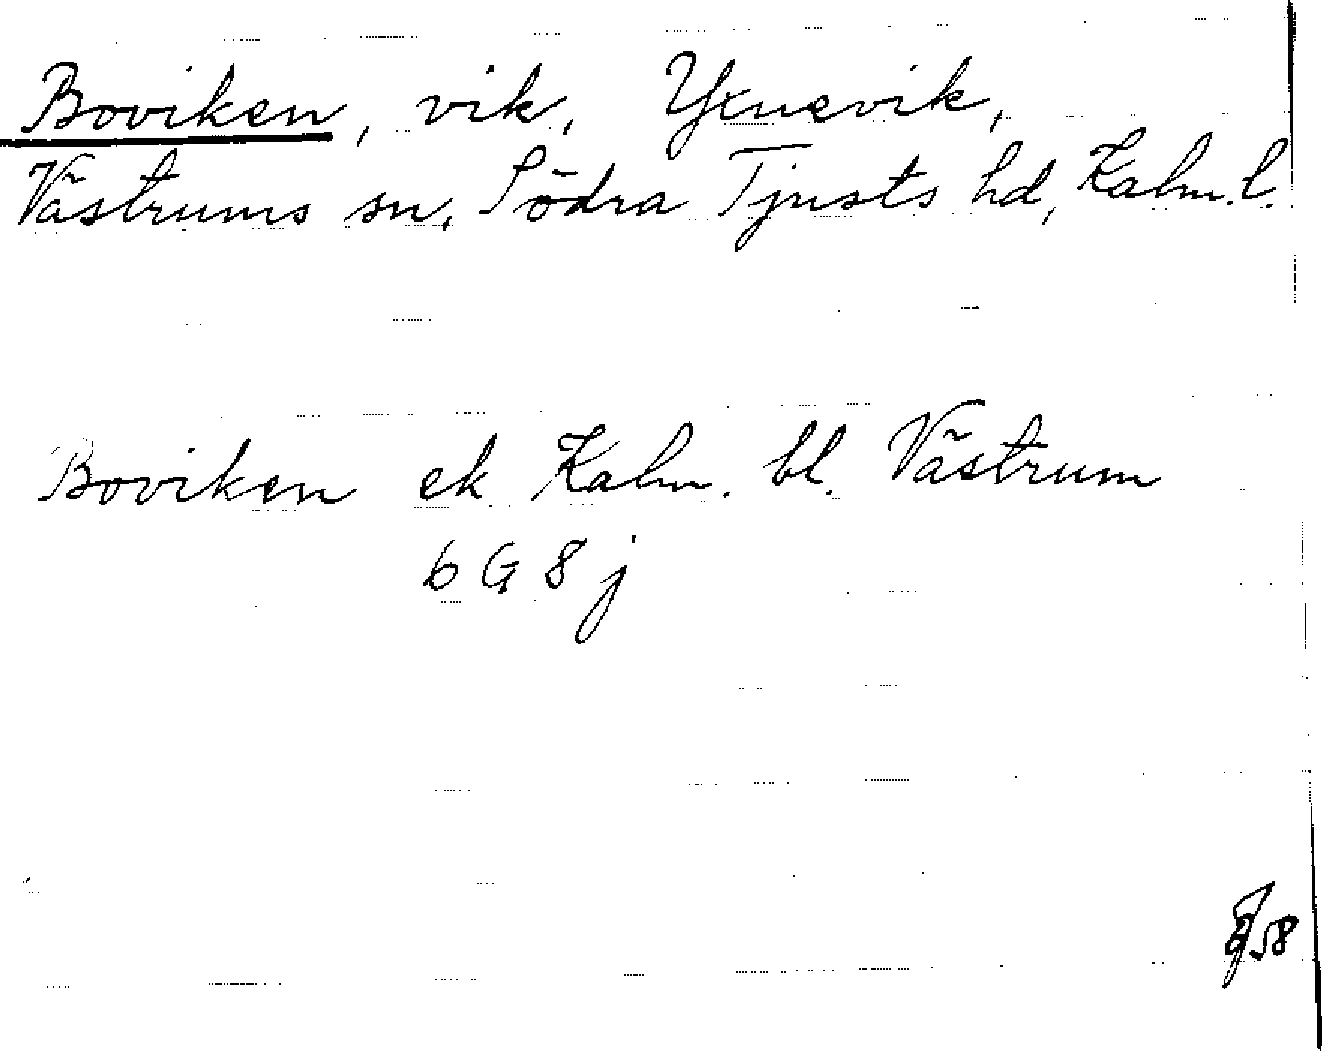 Boviken, vik, Yxnevik,
Västrums sn, Södra Tjusts hd, Kalm. l.
Boviken ek. Kalm. bl. Västrum
6 G 8 j
58